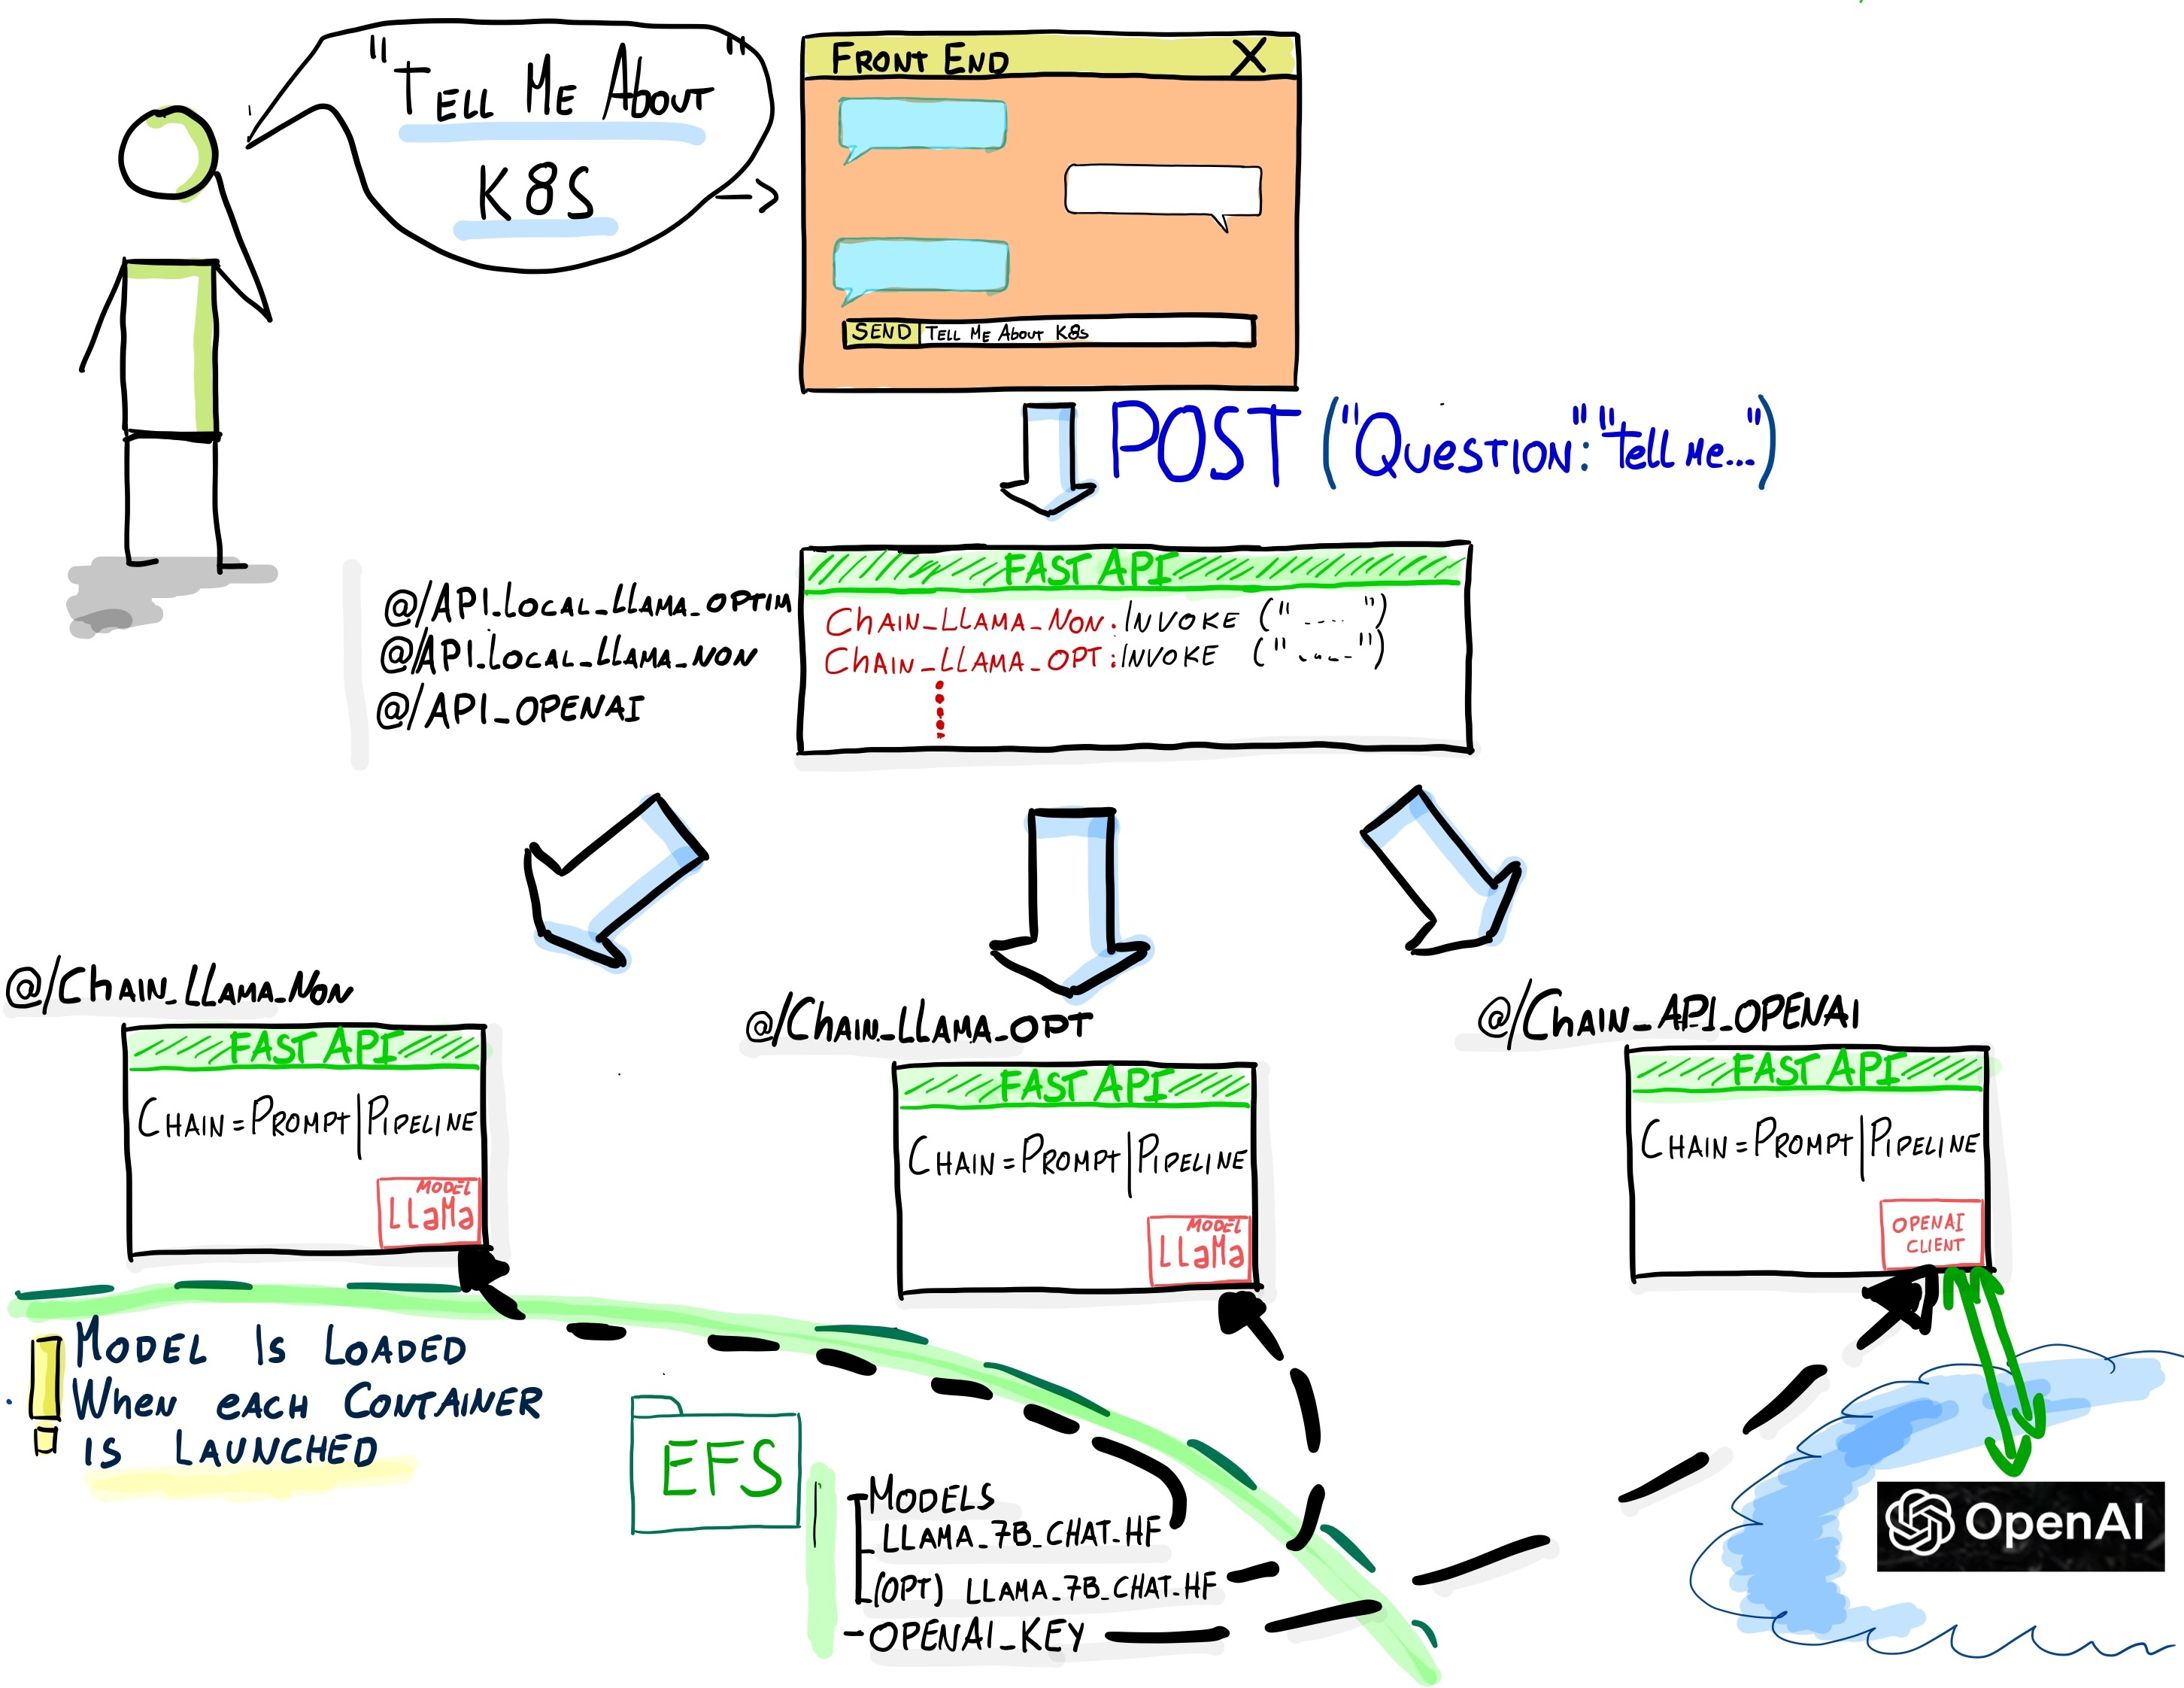 "Tell Me About"
K8s
Front End X
SEND Tell Me About K8s
POST ("Question":"Tell Me...")
FAST API
@/API.Local_LLama_OPTIM
@/API.Local_LLama_NON
@/API_OPENAI
Chain_LLama_Non.Invoke ("....")
Chain_LLama_OPT:Invoke ("....")
@/Chain_LLama_Non
FAST API
Chain = Prompt | Pipeline
MODEL
LLaMa
@/Chain_LLama_OPT
FAST API
Chain = Prompt | Pipeline
MODEL
LLaMa
@/Chain_API_OPENAI
FAST API
Chain = Prompt | Pipeline
OPENAI
CLIENT
Model Is Loaded
When each Container
is Launched
EFS
Models
LLAMA_7B_CHAT-HF
(OPT) LLAMA_7B_CHAT-HF
OPENAI_KEY
OpenAI